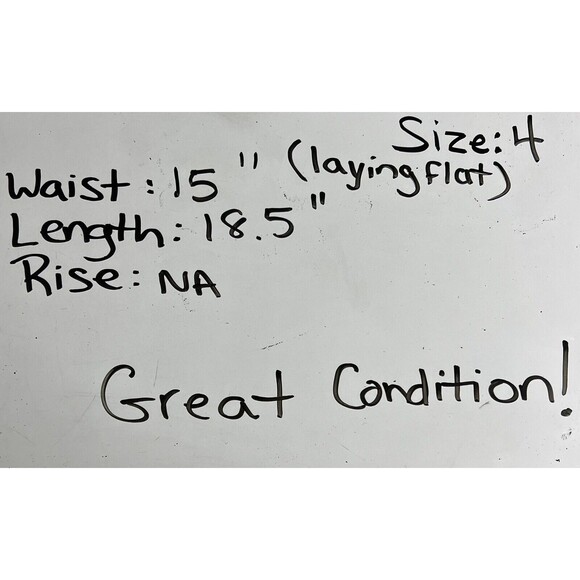 Size: 4
Waist: 15" (laying flat)
Length: 18.5"
Rise: NA
Great Condition!